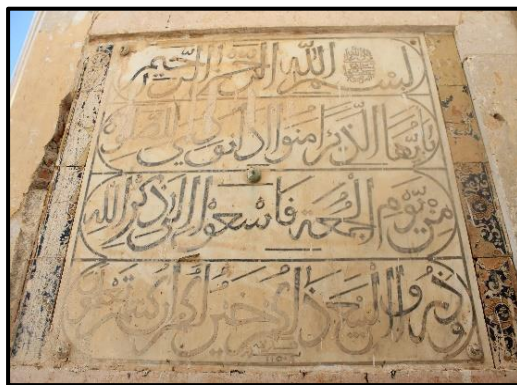 بسم الله الرحمن الرحيم
يا يها الذين امنوا اذا نودي للصلوة
من يوم الجمعة فاسعوا الى ذكر الله
وذروا البيع ذلكم خير لكم ان كنتم تعلمون